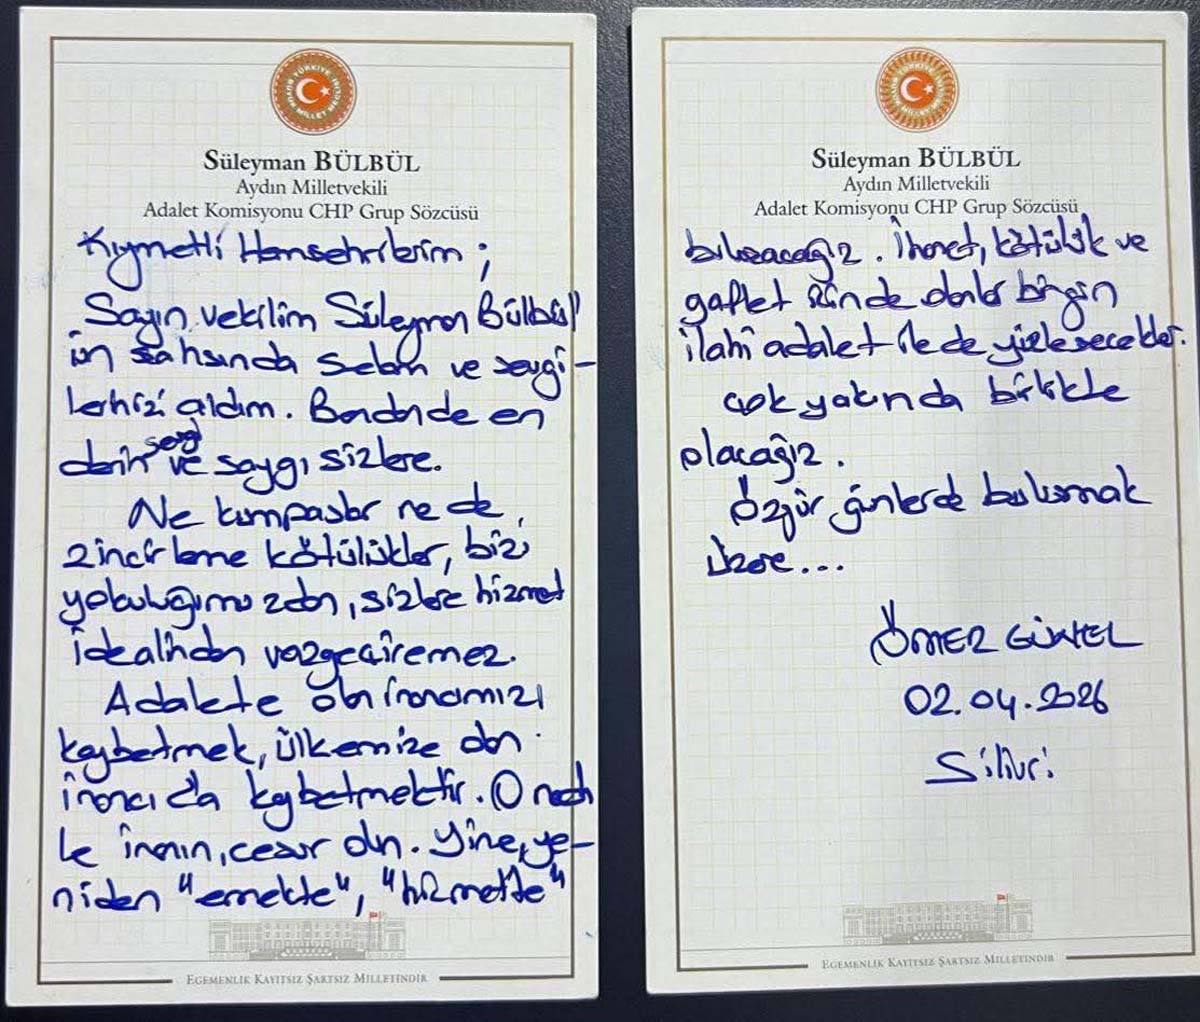 TÜRKİYE BÜYÜK MİLLET MECLİSİ
Süleyman BÜLBÜL
Aydın Milletvekili
Adalet Komisyonu CHP Grup Sözcüsü
Kıymetli Hemşehrilerim;
Sayın vekilim Süleyman Bülbül'
ün şahsında selam ve sevgi-
lerinizi aldım. Bendende en
derin sevgi ve saygı sizlere.
Ne kumpaslar ne de
zincirleme kötülükler, bizi
yolculuğumuzdan, sizlere hizmet
idealinden vazgeçiremez.
Adalete olan inancımızı
kaybetmek, ülkemize olan
inancı da kaybetmektir. O neden
le inanın, cesur olun. Yine, ye-
niden "emekte", "hizmette"
EGEMENLİK KAYITSIZ ŞARTSIZ MİLLETİNDİR
TÜRKİYE BÜYÜK MİLLET MECLİSİ
Süleyman BÜLBÜL
Aydın Milletvekili
Adalet Komisyonu CHP Grup Sözcüsü
buluşacağız. İhanet, kötülük ve
gaflet içinde olanlar birgün
ilahi adalet ile de yüzleşecekler.
Çok yakında birlikte
olacağız.
Özgür günlerde buluşmak
üzere...
ÖMER GÜNEL
02.04.2026
Silivri
EGEMENLİK KAYITSIZ ŞARTSIZ MİLLETİNDİR